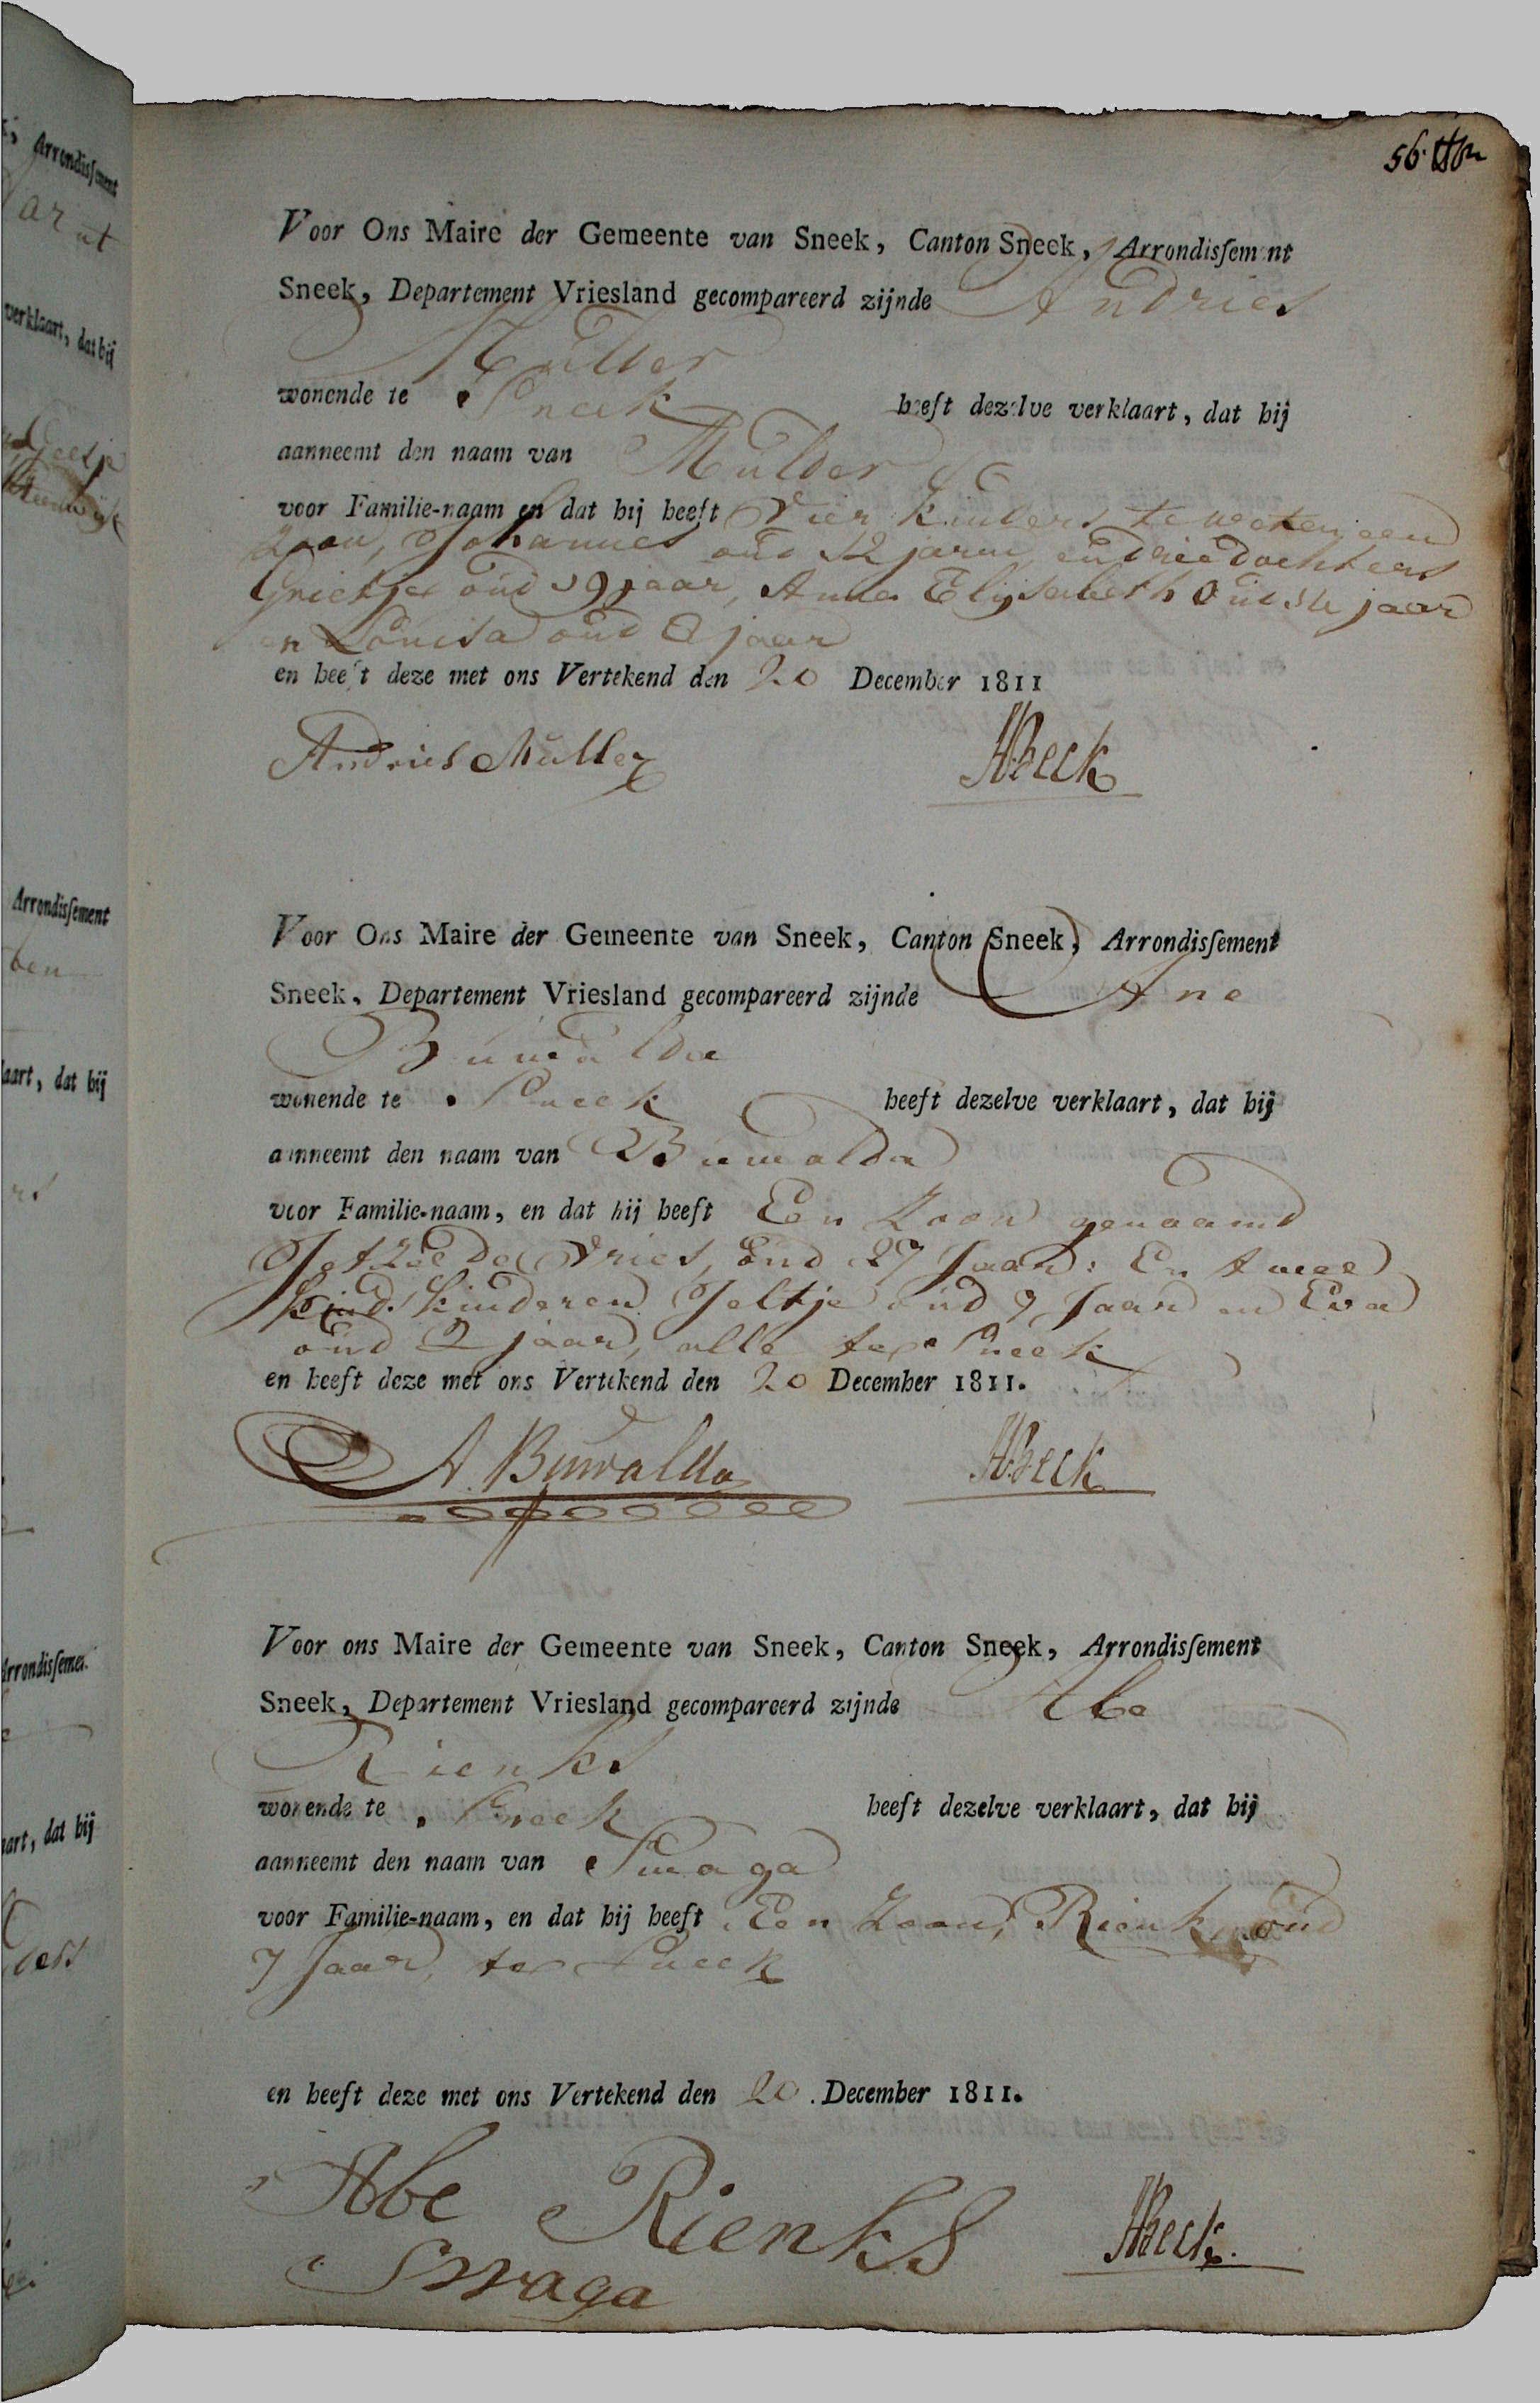 56.
Voor Ons Maire der Gemeente van Sneek, Canton Sneek, Arrondissement
Sneek, Departement Vriesland gecompareerd zijnde Andries
Mulder
wonende te Sneek heeft dezelve verklaart, dat hij
aanneemt den naam van Mulder
voor Familie-naam en dat hij heeft Vier kinders te weten, een
Zoon, Johannes oud 12 jaren, en drie dochters
Grietje oud 19 jaar, Anna Elijsabeth oud jaar
en Louisa oud jaar
en heeft deze met ons Vertekend den 20 December 1811
Andries Muller HBeck
Voor Ons Maire der Gemeente van Sneek, Canton Sneek, Arrondissement
Sneek, Departement Vriesland gecompareerd zijnde Ane
Buwalda
wonende te Sneek heeft dezelve verklaart, dat hij
aanneemt den naam van Buwalda
voor Familie-naam, en dat hij heeft Een Zoon genaamd
Jetze de Vries, oud 27 Jaar: En twee
kinderen Jeltje oud 9 Jaar en Eva
oud 2 jaar, alle ter Sneek
en heeft deze met ons Vertekend den 20 December 1811.
A. Buwalda HBeck
Voor ons Maire der Gemeente van Sneek, Canton Sneek, Arrondissement
Sneek, Departement Vriesland gecompareerd zijnde Abe
Rienks
wonende te Sneek heeft dezelve verklaart, dat hij
aanneemt den naam van Swaga
voor Familie-naam, en dat hij heeft Een Zoon, Rienk, oud
7 Jaar, ter Sneek
en heeft deze met ons Vertekend den 20. December 1811.
Abe Rienks HBeck.
Swaga